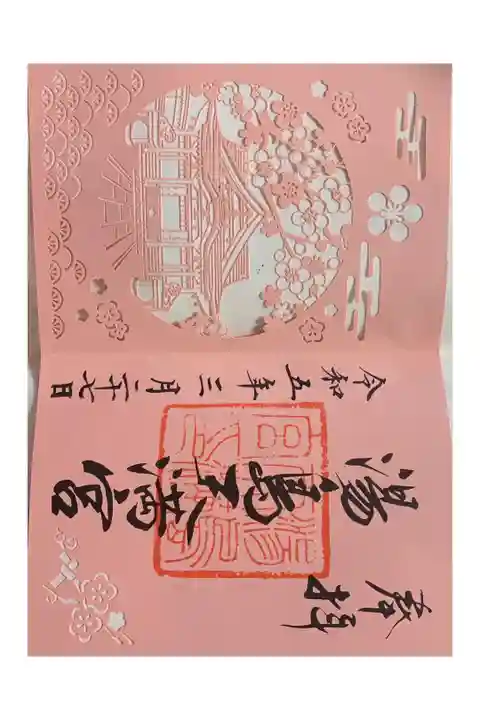 奉拝
湯島天満宮
令和五年三月二十七日